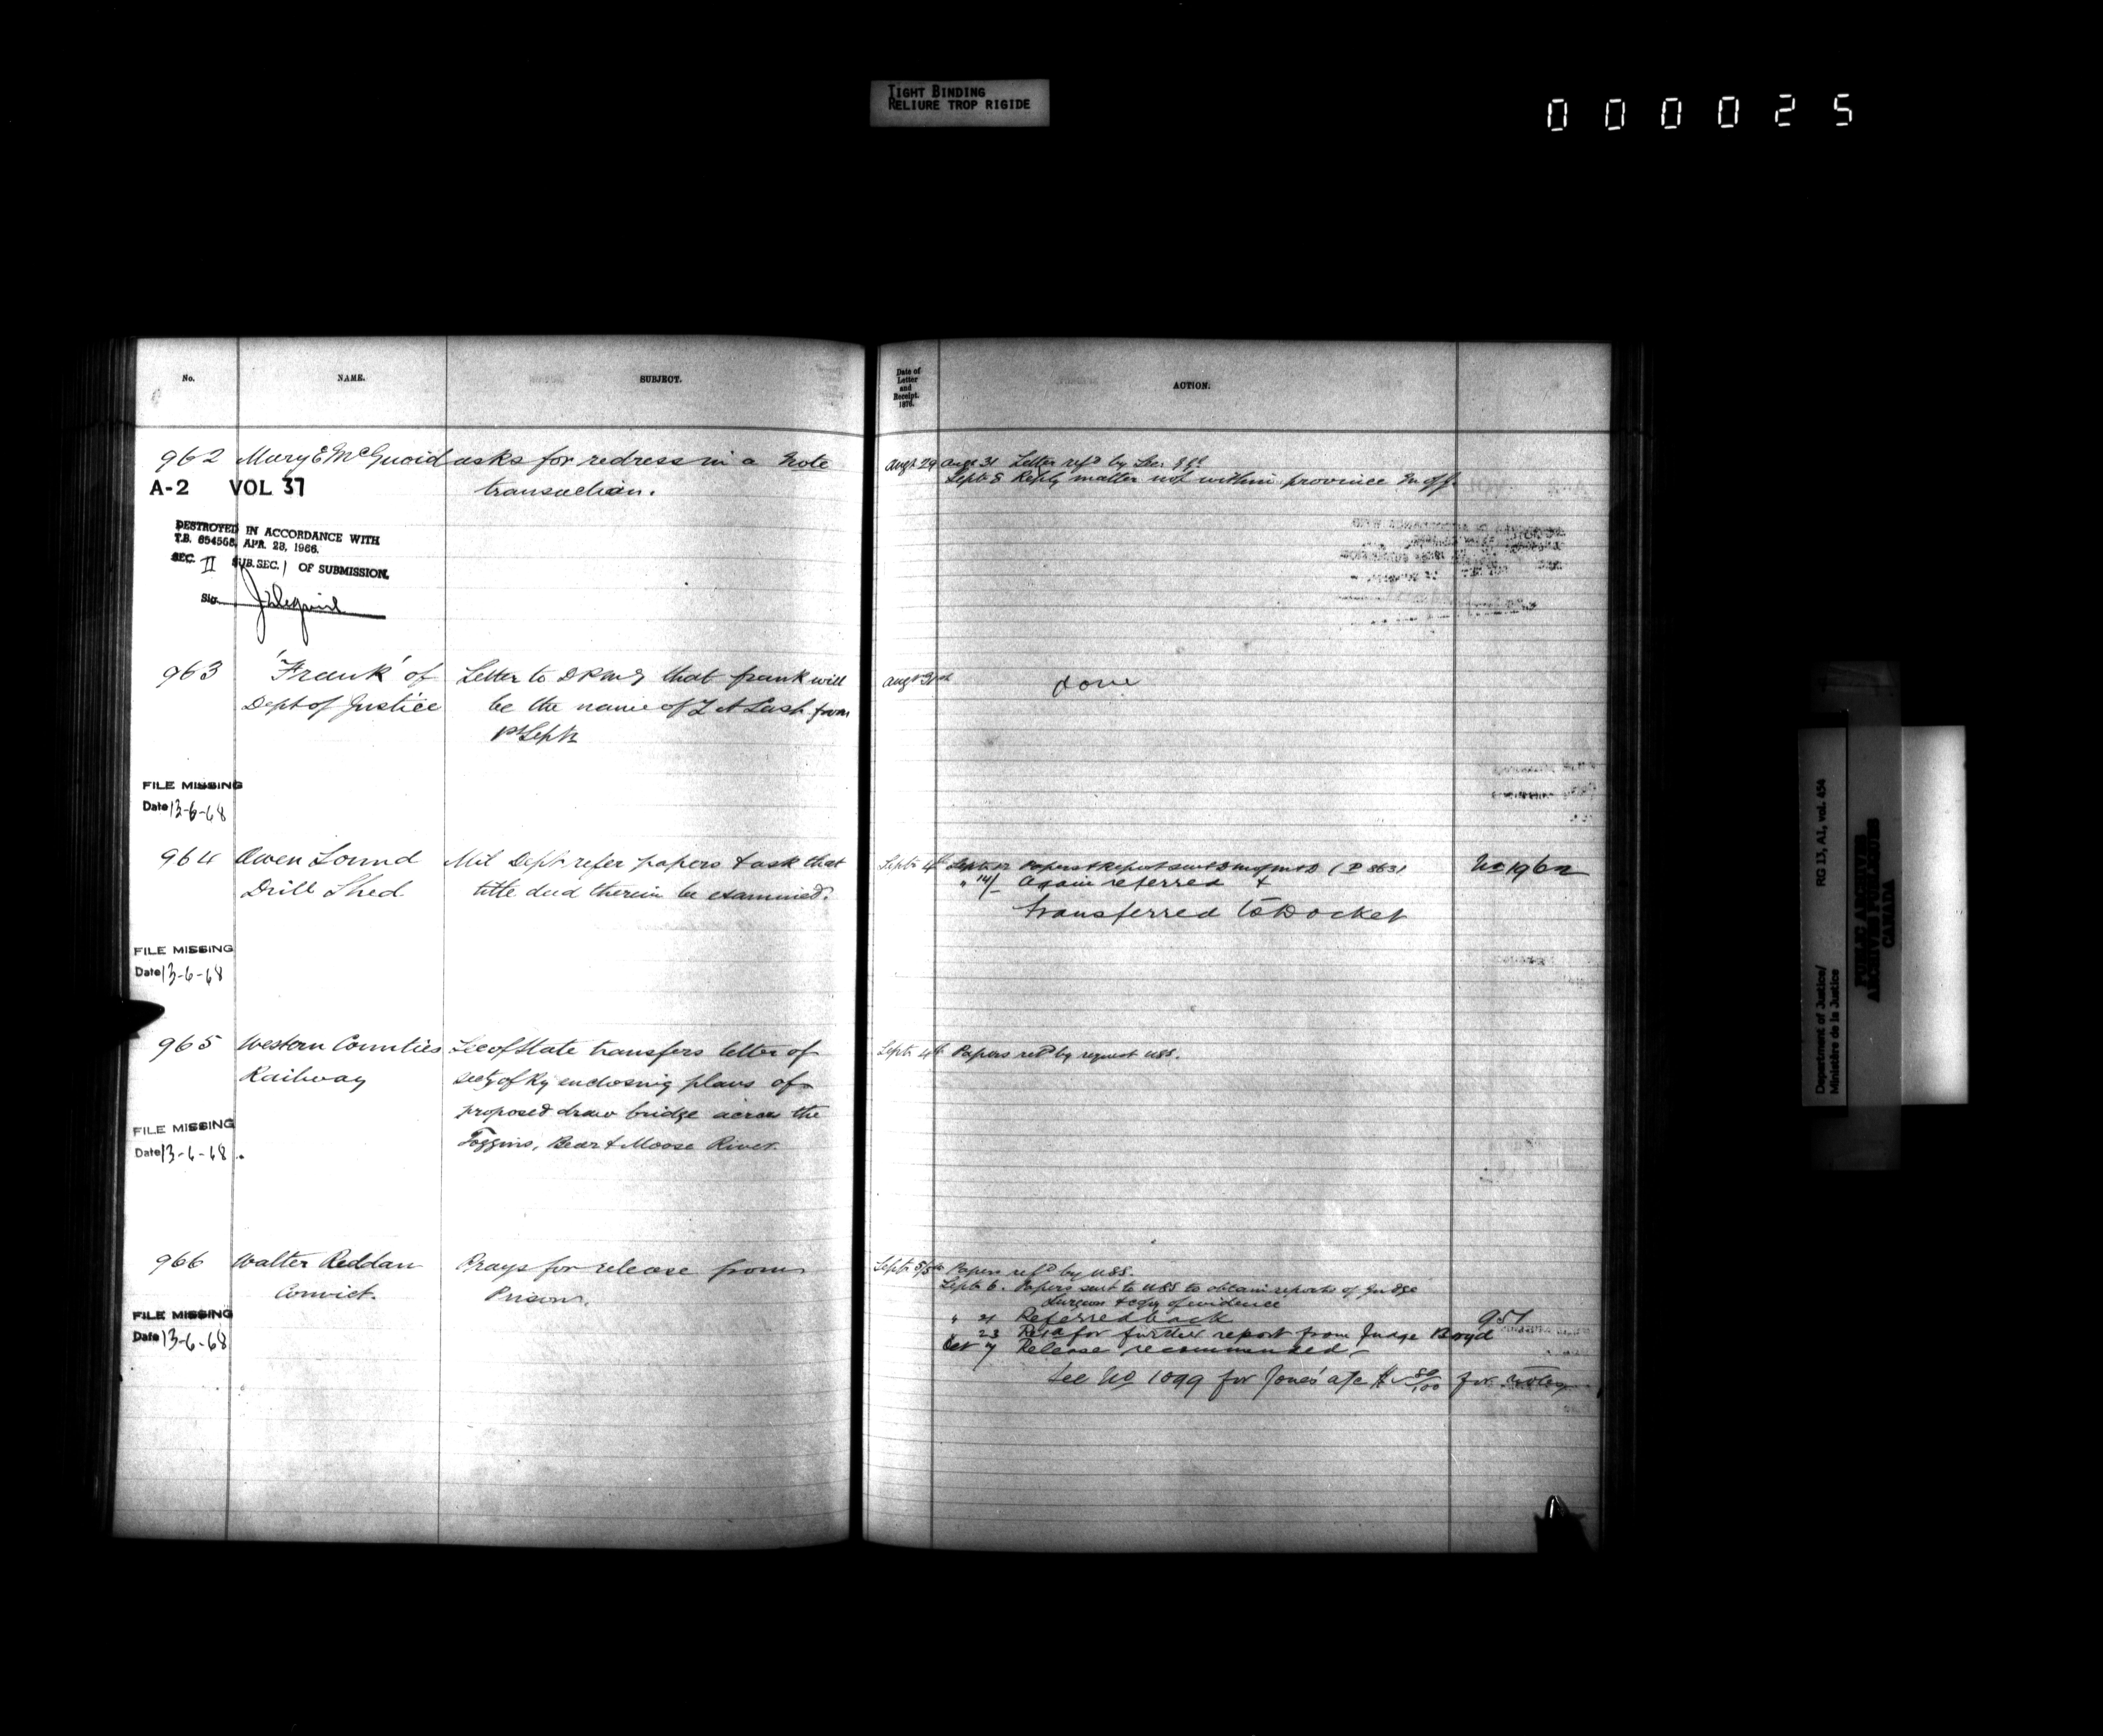 TIGHT BINDING
RELIURE TROP RIGIDE
000025
No.
NAME.
SUBJECT.
962 Mary E McGuoid asks for redress in a Note
transaction.
A-2 VOL 37
DESTROYED IN ACCORDANCE WITH
T.B. 654568, APR. 28, 1966.
SEC. II SUB. SEC. 1 OF SUBMISSION.
Sig.
963 'Frank' of Letter to DPMG that frank will
Dept of Justice be the name of Z A Lash from
1st Septr
FILE MISSING
Date 13-6-68
964 Owen Sound Mil Dept refer papers & ask that
Drill Shed title deed therein be examined.
FILE MISSING
Date 13-6-68
965 Western Counties Sec of State transfers letter of
Railway secty of Ry enclosing plans of
proposed draw bridge across the
Joggins, Bear & Moose River.
FILE MISSING
Date 13-6-68
966 Walter Reddan Prays for release from
Convict. Prison.
FILE MISSING
Date 13-6-68
Date of
Letter
and
Receipt.
1876.
ACTION.
Augt 29 Augt 31 Letter refd by Sec
Septr 8 Reply matter not within province
Augt 31st done
Septr 4th Septr 12 Papers & Report sent D M of M & D (D 863)
" 14/ Again referred &
transferred to Docket
No 1962
Septr 4th Papers retd by request USS.
Septr 5/5th Papers refd by USS.
Septr 6. Papers sent to USS to obtain reports of Judge
Surgeon & copy of evidence
" 21 Referred back
957
" 23 for further report from Judge Boyd
Oct 7 Release recommended
See No 1099 for Jones' a/c for notes
Department of Justice/
Ministère de la Justice
RG 13, A1, vol. 454
PUBLIC ARCHIVES
ARCHIVES PUBLIQUES
CANADA